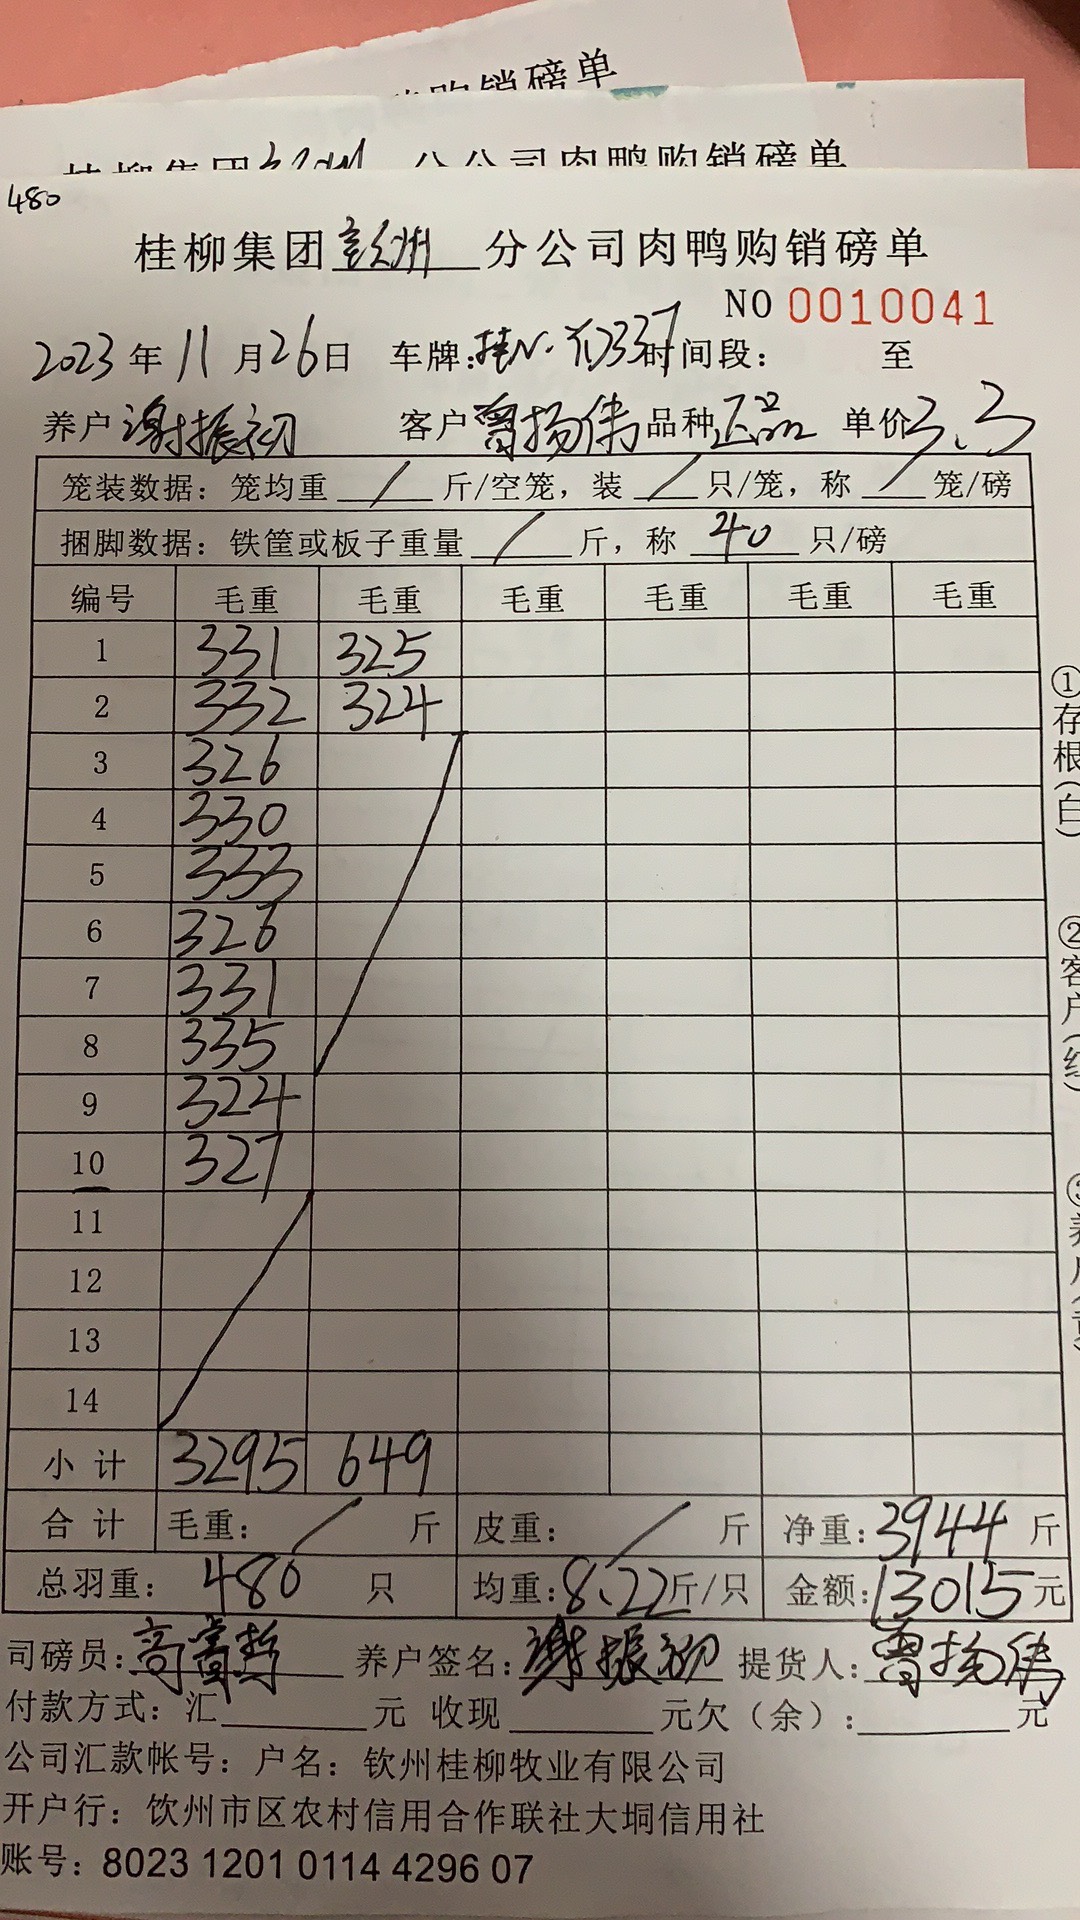 购销磅单
分公司肉鸭购销磅单
480
桂柳集团 分公司肉鸭购销磅单
NO 0010041
2023年11月26日 车牌:桂N· D337时间段: 至
养户谢振初 客户曾扬伟品种正品 单价3.3
笼装数据:笼均重/斤/空笼,装/只/笼,称/笼/磅
捆脚数据:铁筐或板子重量/斤,称40只/磅
编号 毛重 毛重 毛重 毛重 毛重 毛重
1 331 325
2 332 324
3 326
4 330
5 333
6 326
7 331
8 335
9 324
10 327
11
12
13
14
小计 3295 649
合计 毛重:/斤 皮重:/斤 净重:3944斤
总羽重:480只 均重:8.22斤/只 金额:13015元
司磅员:高 养户签名:谢振初 提货人:曾扬伟
付款方式:汇 元 收现 元欠(余): 元
公司汇款帐号:户名:钦州桂柳牧业有限公司
开户行:饮州市区农村信用合作联社大垌信用社
账号:8023 1201 0114 4296 07
①存根(白)
②客户(红)